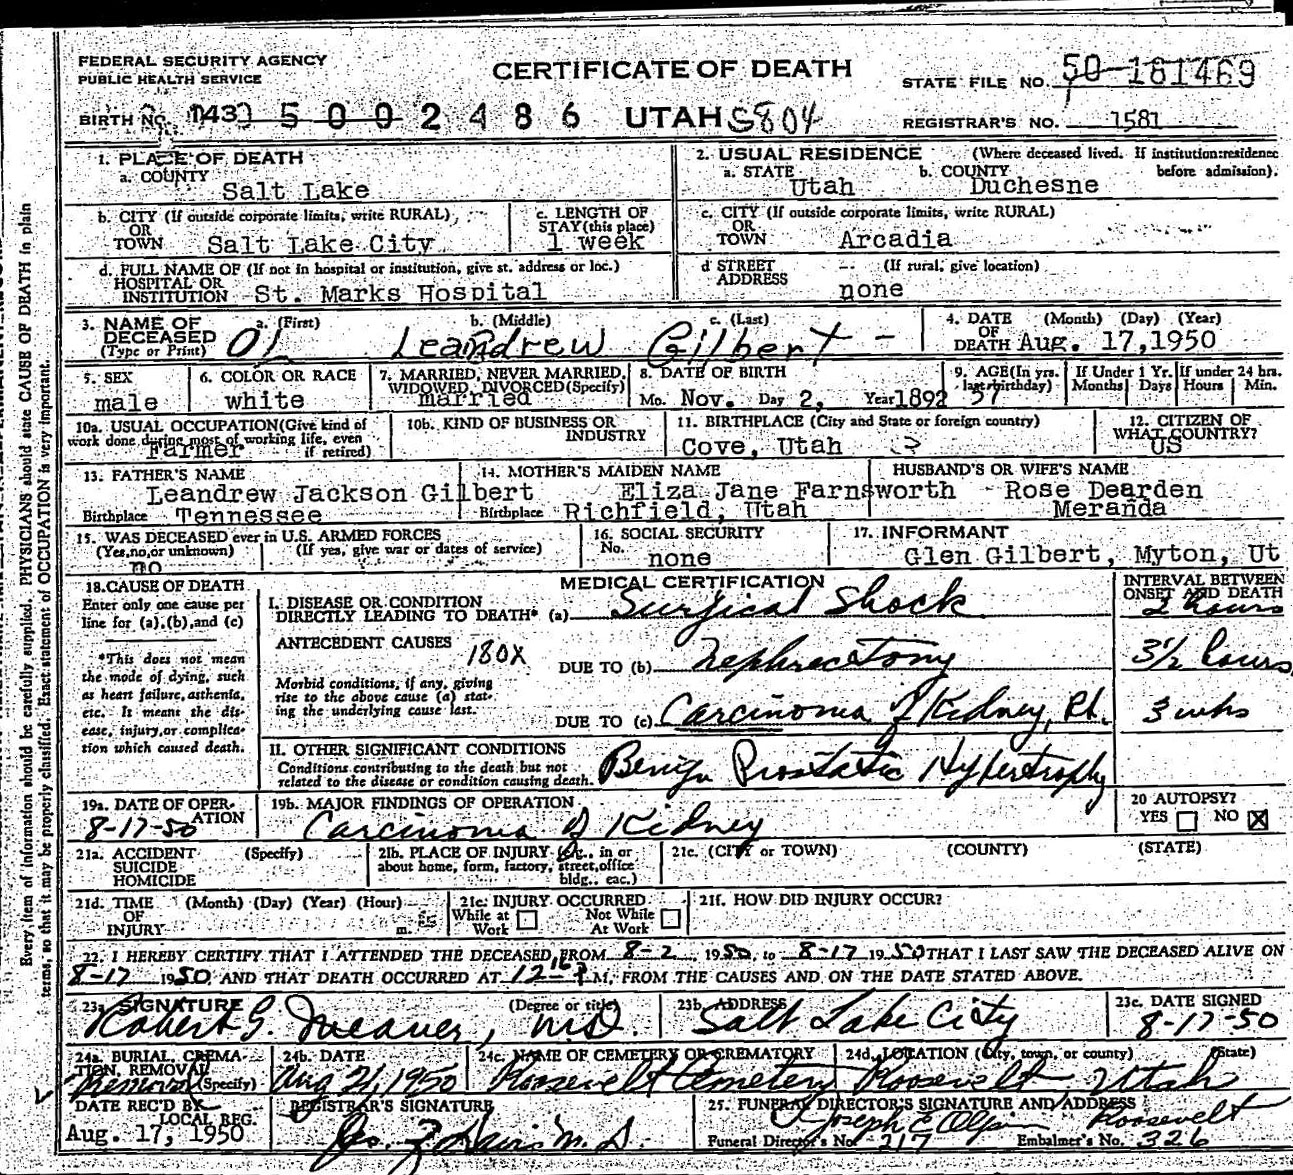 FEDERAL SECURITY AGENCY
PUBLIC HEALTH SERVICE
CERTIFICATE OF DEATH
STATE FILE NO. 50-181469
BIRTH NO. 143 5002486 UTAH S804
REGISTRAR'S NO. 1581
1. PLACE OF DEATH
a. COUNTY
Salt Lake
2. USUAL RESIDENCE (Where deceased lived. If institution:residence before admission).
a. STATE b. COUNTY
Utah Duchesne
b. CITY (If outside corporate limits, write RURAL)
OR
TOWN Salt Lake City
c. LENGTH OF
STAY(this place)
1 week
c. CITY (If outside corporate limits, write RURAL)
OR
TOWN Arcadia
d. FULL NAME OF (If not in hospital or institution, give st. address or loc.)
HOSPITAL OR
INSTITUTION St. Marks Hospital
d STREET (If rural, give location)
ADDRESS
none
3. NAME OF a. (First) b. (Middle) c. (Last)
DECEASED
(Type or Print) OL Leandrew Gilbert -
4. DATE (Month) (Day) (Year)
OF
DEATH Aug. 17,1950
5. SEX
male
6. COLOR OR RACE
white
7. MARRIED, NEVER MARRIED,
WIDOWED, DIVORCED(Specify)
married
8. DATE OF BIRTH
Mo. Nov. Day 2, Year 1892
9. AGE(In yrs. last birthday)
57
If Under 1 Yr. Months Days
If under 24 hrs. Hours Min.
10a. USUAL OCCUPATION(Give kind of
work done during most of working life, even
if retired)
Farmer
10b. KIND OF BUSINESS OR
INDUSTRY
11. BIRTHPLACE (City and State or foreign country)
Cove, Utah ?
12. CITIZEN OF
WHAT COUNTRY?
US
13. FATHER'S NAME
Leandrew Jackson Gilbert
Birthplace Tennessee
14. MOTHER'S MAIDEN NAME
Eliza Jane Farnsworth
Birthplace Richfield, Utah
HUSBAND'S OR WIFE'S NAME
Rose Dearden
Meranda
15. WAS DECEASED ever in U.S. ARMED FORCES
(Yes,no,or unknown) (If yes, give war or dates of service)
no
16. SOCIAL SECURITY
No.
none
17. INFORMANT
Glen Gilbert, Myton, Ut
18. CAUSE OF DEATH
Enter only one cause per
line for (a),(b),and (c)
*This does not mean
the mode of dying, such
as heart failure, asthenia,
etc. It means the dis-
ease, injury, or complica-
tion which caused death.
MEDICAL CERTIFICATION
INTERVAL BETWEEN
ONSET AND DEATH
I. DISEASE OR CONDITION
DIRECTLY LEADING TO DEATH* (a) Surgical Shock 2 hours
ANTECEDENT CAUSES 180X
DUE TO (b) Nephrectomy 3½ hours
Morbid conditions, if any, giving
rise to the above cause (a) stat-
ing the underlying cause last.
DUE TO (c) Carcinoma of Kidney, Rt. 3 wks
II. OTHER SIGNIFICANT CONDITIONS
Conditions contributing to the death but not
related to the disease or condition causing death.
Benign Prostatic Hypertrophy
19a. DATE OF OPER-
ATION
8-17-50
19b. MAJOR FINDINGS OF OPERATION
Carcinoma of Kidney
20 AUTOPSY?
YES NO X
21a. ACCIDENT (Specify)
SUICIDE
HOMICIDE
21b. PLACE OF INJURY (e.g., in or
about home, form, factory, street,office
bldg., eac.)
21c. (CITY or TOWN) (COUNTY) (STATE)
21d. TIME (Month) (Day) (Year) (Hour)
OF
INJURY m.
21e. INJURY OCCURRED
While at Work Not While At Work
21f. HOW DID INJURY OCCUR?
22. I HEREBY CERTIFY THAT I ATTENDED THE DECEASED FROM 8-2 1950 to 8-17 1950 THAT I LAST SAW THE DECEASED ALIVE ON
8-17 1950 AND THAT DEATH OCCURRED AT M. FROM THE CAUSES AND ON THE DATE STATED ABOVE.
23a SIGNATURE (Degree or title)
Robert G. Weaver, M.D.
23b ADDRESS
Salt Lake City
23c. DATE SIGNED
8-17-50
24a. BURIAL, CREMA-
TION, REMOVAL
(Specify)
Removal
24b. DATE
Aug 21, 1950
24c. NAME OF CEMETERY OR CREMATORY
Roosevelt Cemetery
24d. LOCATION (City, town, or county) (State)
Roosevelt Utah
DATE REC'D BY
LOCAL REG.
Aug. 17, 1950
REGISTRAR'S SIGNATURE
M.D.
25. FUNERAL DIRECTOR'S SIGNATURE AND ADDRESS
Joseph E Olpin Roosevelt
Funeral Director's No. 217 Embalmer's No. 326
Every item of information should be carefully supplied. PHYSICIANS should state CAUSE OF DEATH in plain
terms, so that it may be properly classified. Exact statement of OCCUPATION is very important.